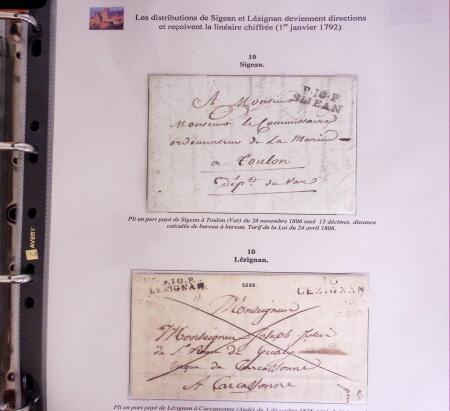 Les distributions de Sigean et Lézignan deviennent directions
et reçoivent la linéaire chiffrée (1er janvier 1792)
10
Sigean.
P.10.P
SIJEAN
A Monsieur
Monsieur le Commissaire
ordonnateur de La Marine
a Toulon
Dépt. du Var
Pli en port payé de Sigean à Toulon (Var) du 26 novembre 1806 taxé 15 décimes, distance
calculée de bureau à bureau. Tarif de la Loi du 24 avril 1806.
10
Lézignan.
P.10.P.
LEZIGNAN
10
LEZIGNAN
Monseigneur
Monseigneur Joseph
de St
de Carcassonne
A Carcassonne
Pli en port payé de Lézignan à Carcassonne (Aude)
AVERY